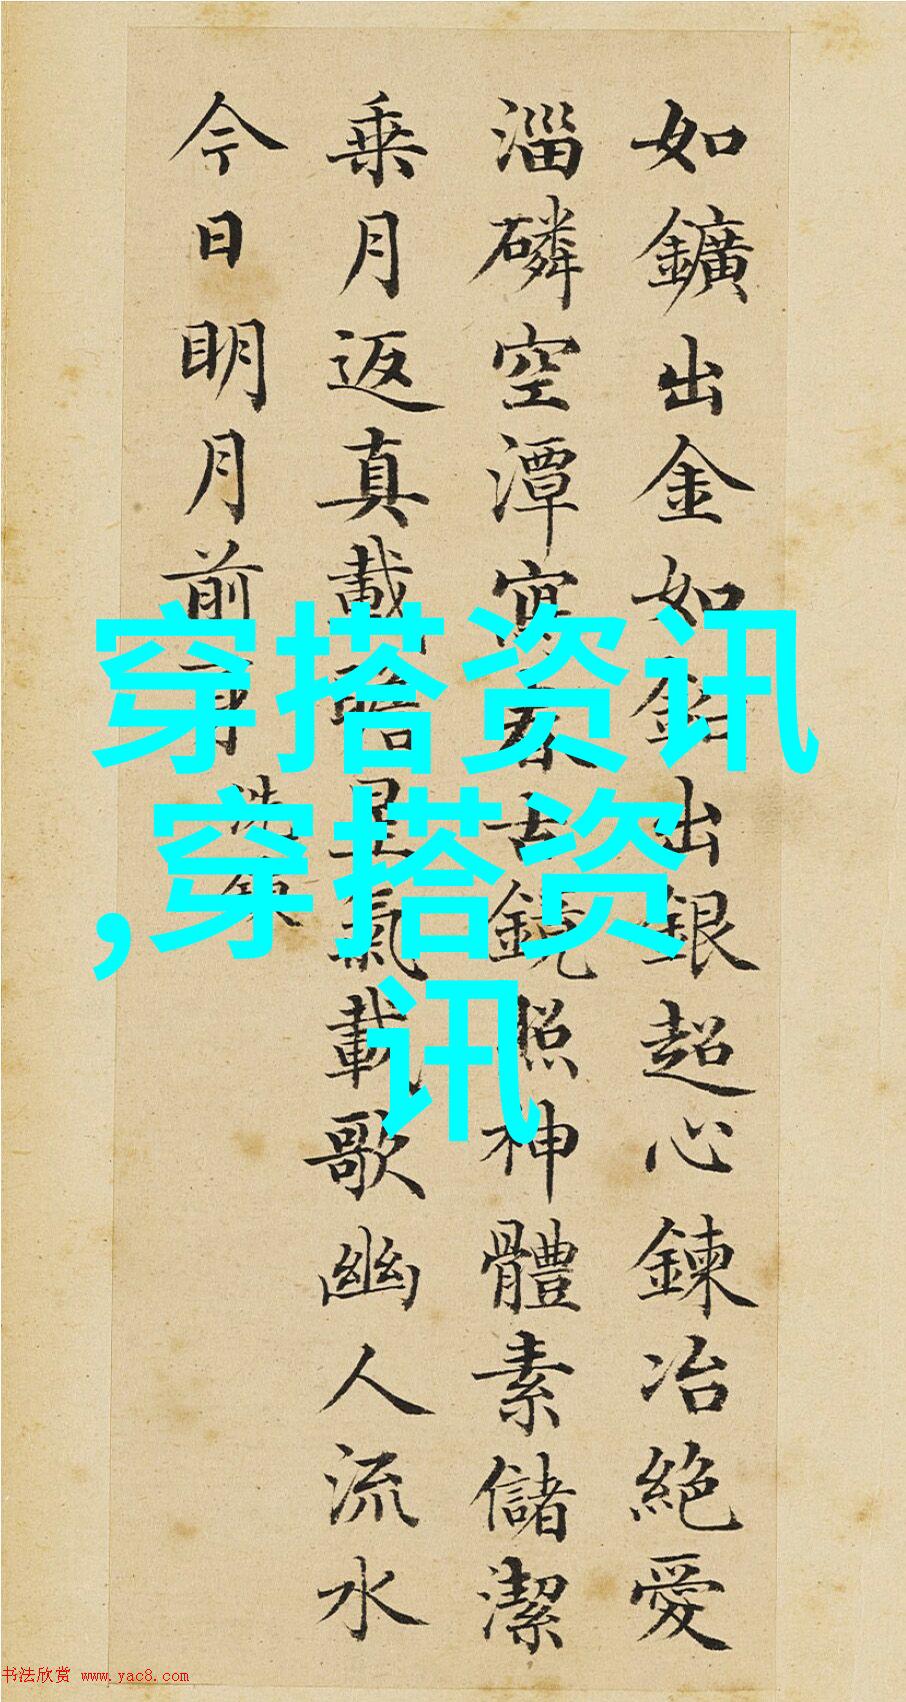 如鑛出金如鉛出銀超心鍊冶絕愛
淄磷空潭寫春古鏡照神體素儲潔
乘月返真載瞻星氣載歌幽人流水
今日明月前身
洗鍊
穿搭资讯
,穿搭资
讯
书法欣赏 www.yac8.com